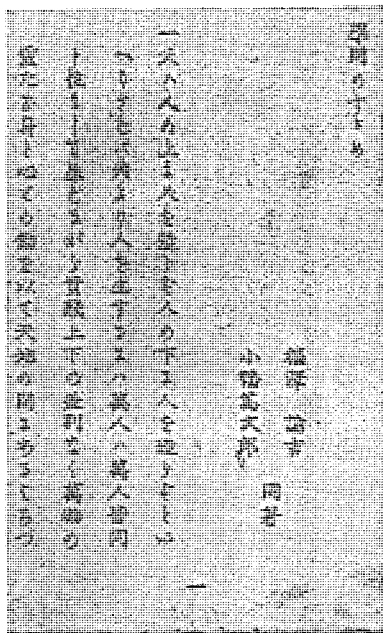 學問のすゝめ
福澤諭吉
小幡篤次郎
同著
一天ハ人の上に人を造らず人の下に人を造らずとい
へりされバ天より人を生ずるにハ萬人ハ萬人皆同
じ位にして生れながら貴賤上下の差別なく萬物の
霊たる身と心との働を以て天地の間にあるよろづ
一